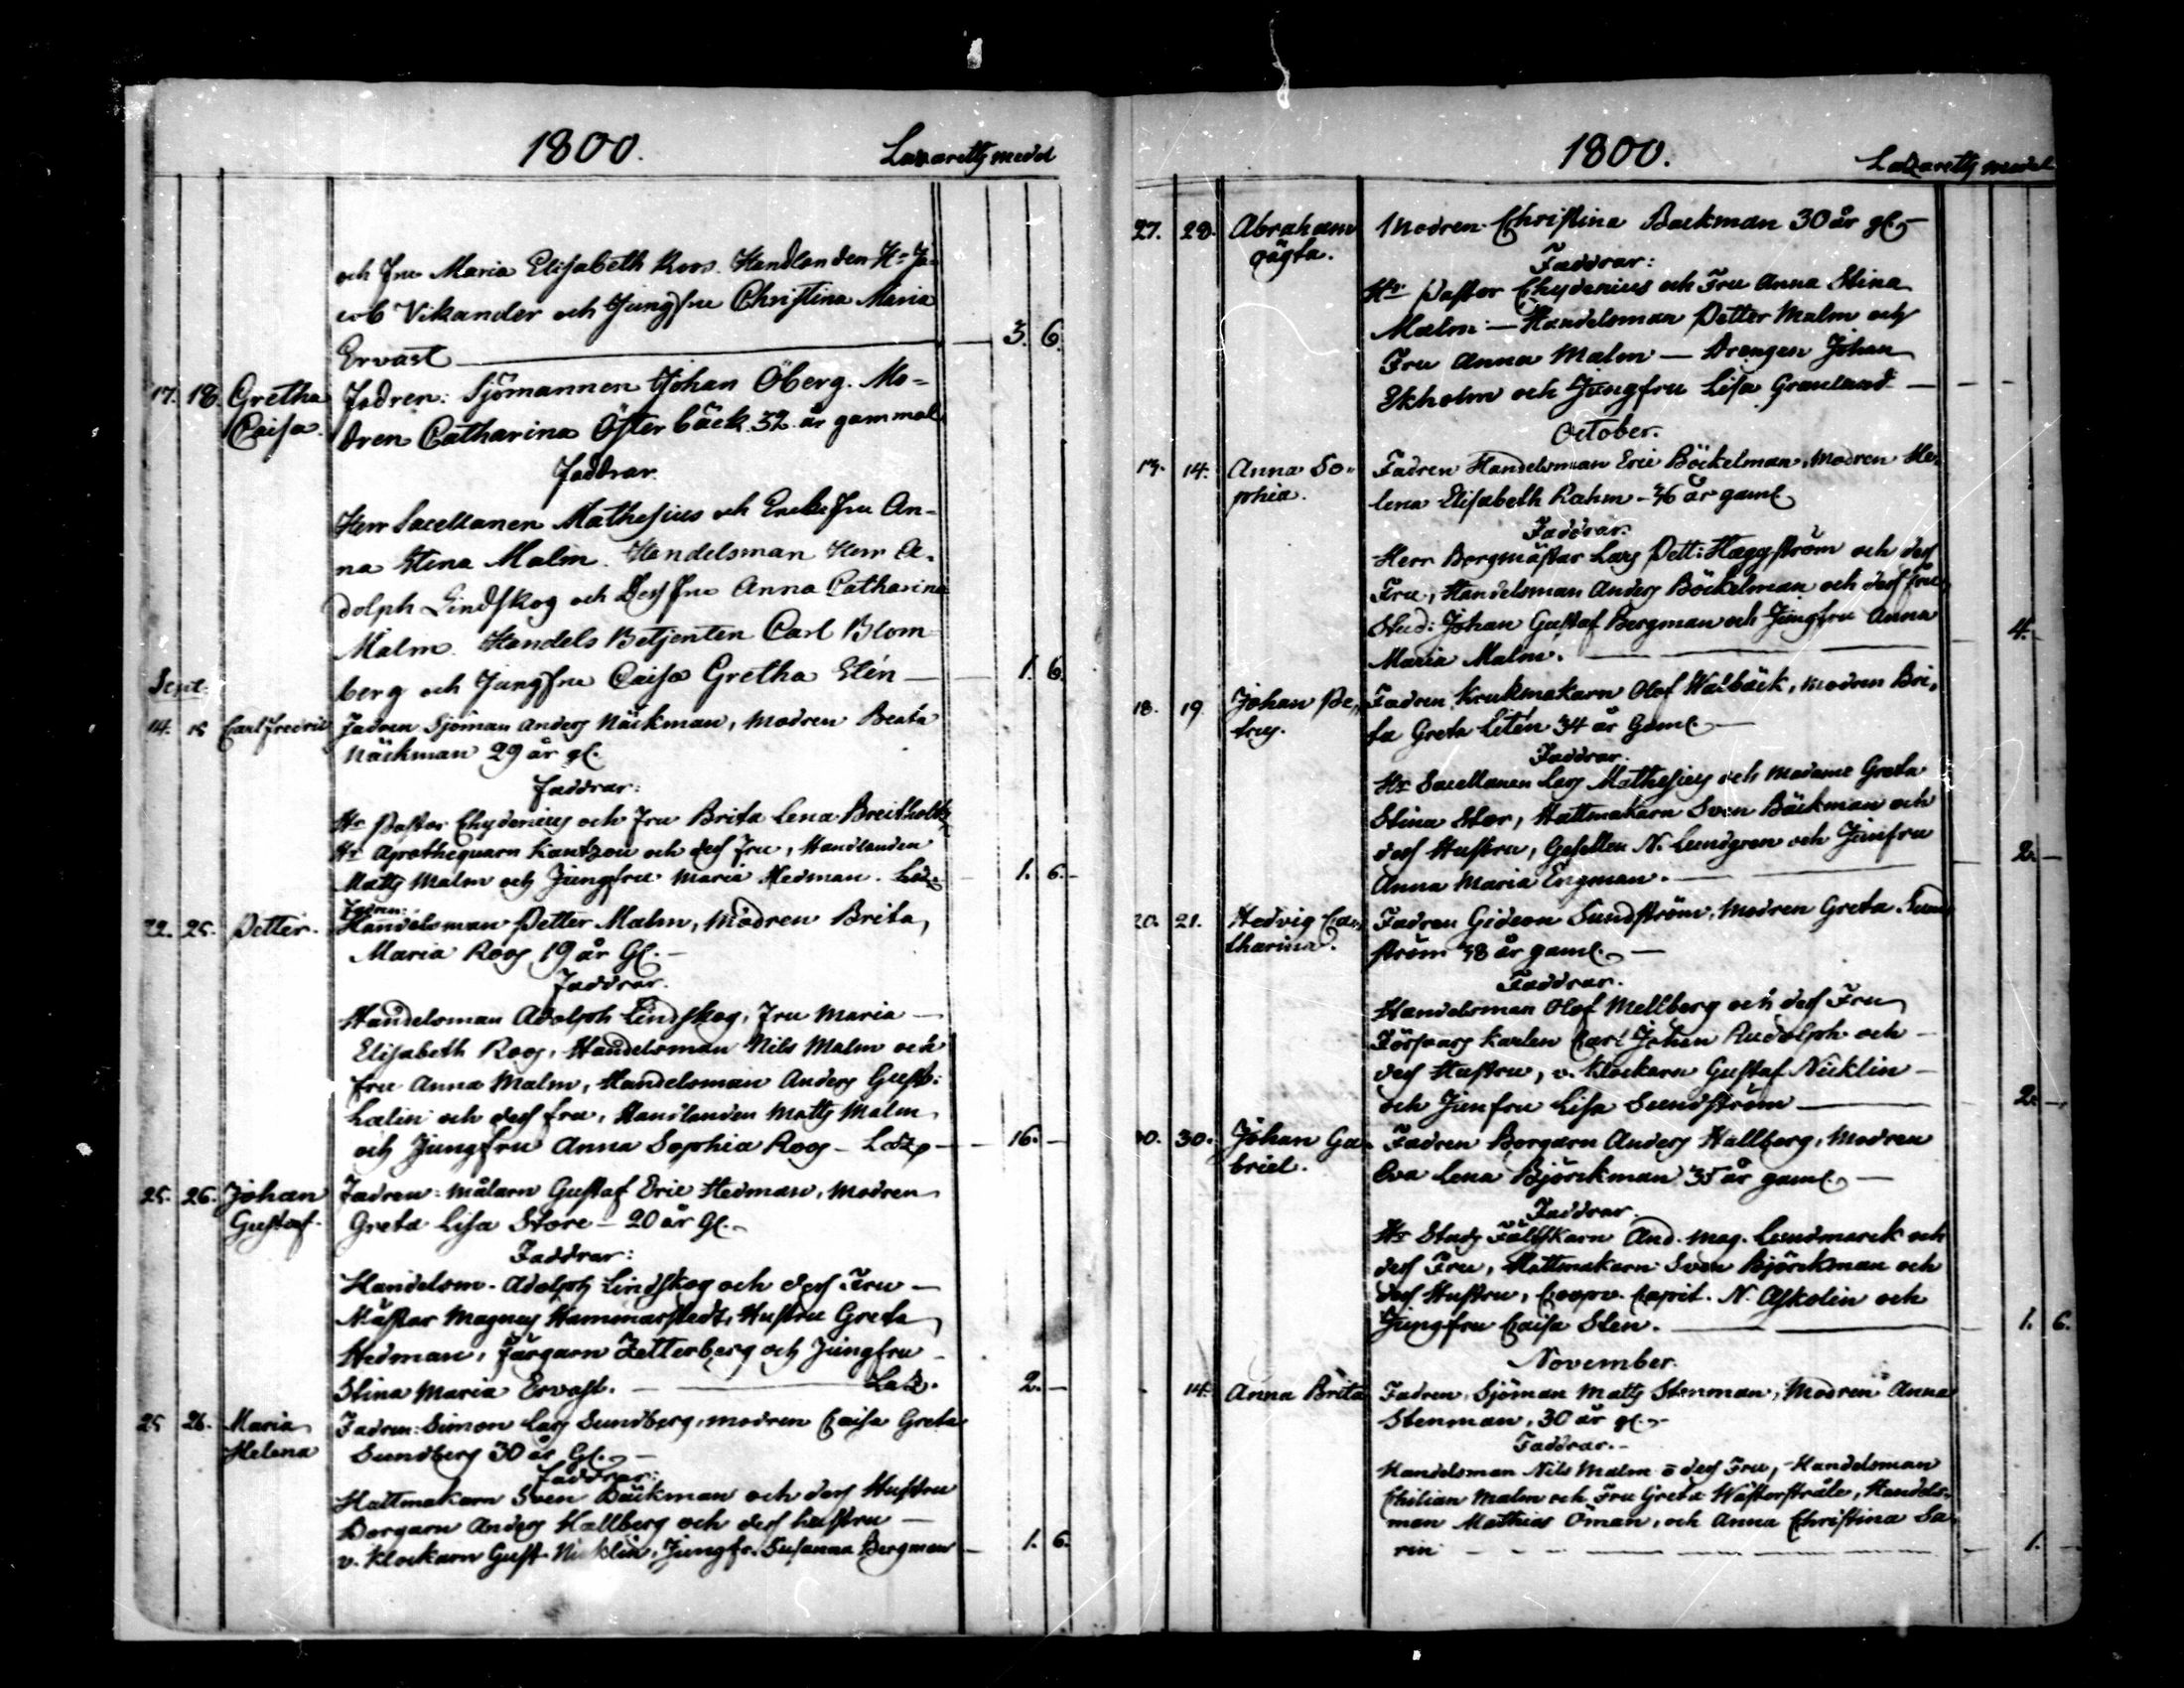 1800. Lazaretts medel
och Fru Maria Elisabeth Roos. Handlanden Hr Ja-
cob Vikander och Jungfru Christina Maria
Ervast — 3. 6.
17. 18. Gretha Fadren: Sjömannen Johan Öberg. Mo-
Caisa. dren Catharina Österbäck 32 år gammal
Faddrar.
Herr Sacellanen Mathesius och Enkefru An-
na Stina Malm. Handelsman Herr A-
dolph Lindskog och Dess fru Anna Catharina
Malm. Handels Betjenten Carl Blom
berg och Jungfru Caisa Gretha Stén — 1. 6.
Sept:
14. 15 Carl Fredric Fadren Sjöman Anders Näckman, Modren Beata
Näckman 29 år gl.
Faddrar:
Hr Pastor Chydenius och Fru Brita Lena Breitholtz
Hr Apothequarn Kantzou och dess Fru, Handlanden
Matts Malm och Jungfru Maria Hedman. Laz. — 1. 6. -
Fadren:
22. 25. Petter. Handelsman Petter Malm, Modren Brita
Maria Roos 19 år Gl. —
Faddrar.
Handelsman Adolph Lindskog, Fru Maria —
Elisabeth Roos, Handelsman Nils Malm och
fru Anna Malm, Handelsman Anders Gust:
Lalin och dess fru, Handlanden Matts Malm
och Jungfru Anna Sophia Roos — Laz. — 16. —
25. 26. Johan Fadren: Målarn Gustaf Eric Hedman, Modren
Gustaf. Greta Lisa Store — 20 år Gl. -
Faddrar:
Handelsm. Adolph Lindskog och dess Fru —
Mästar Magnus Hammarstedt, Hustru Greta
Hedman, Färgarn Zetterberg och Jungfru —
Stina Maria Ervast. — Laz. 2. —
25 26. Maria Fadren: Simon Lars Sundberg, modren Caisa Greta
Helena Sundberg 30 år Gl. —
Faddrar:
Hattmakarn Sven Bäckman och dess Hustru
Borgarn Anders Hallberg och dess hustru —
v. Klockarn Gust. Nicklin, Jungfr. Susanna Bergman — 1. 6.
1800. Lazaretts medel
27. 28. Abraham Modren Christina Backman 30 år gl. —
oägta.
Faddrar:
Hr Pastor Chydenius och Fru Anna Stina
Malm — Handelsman Petter Malm och
Fru Anna Malm — Drengen Johan
Ekholm och Jungfru Lisa Granlund — — -
October.
13. 14. Anna So- Fadren Handelsman Eric Böckelman, Modren He-
phia. lena Elisabeth Rahm - 36 år gaml.
Faddrar:
Herr Borgmästar Lars Pett: Häggström och dess
Fru, Handelsman Anders Böckelman och dess fru,
Stud: Johan Gustaf Bergman och Jungfru Anna
Maria Malm. — 4. -
18. 19 Johan Pe- Fadren Krukmakarn Olof Walbäck, Modren Bri-
trus. ta Greta Litén 34 år Gaml. —
Faddrar.
Hr Sacellanen Lars Mathesius och Madame Greta
Stina Stor, Hattmakarn Sven Bäckman och
dess Hustru, Gesellen N. Lundgren och Junfru
Anna Maria Engman. — 2. —
20. 21. Hedvig Ca- Fadren Gideon Sundström, Modren Greta Sund
tharina. ström 38 år gaml. —
Faddrar.
Handelsman Olof Mellberg och dess Fru
Försvars Karlen Carl Johan Rudolph och —
dess Hustru, v. Klockarn Gustaf Nicklin —
och Junfru Lisa Sundström — 2. -
30. 30. Johan Ga- Fadren Borgarn Anders Hallberg, Modren
briel. Eva Lena Björckman 35 år gaml. —
Faddrar.
Hr Stads Fältskärn And. Mag. Lundmarck och
dess Fru, Hattmakarn Sven Björckman och
dess Hustru, Coopv. Capit. N. Askolin och
Jungfru Caisa Sten. — 1. 6.
November.
- 14. Anna Brita Fadren, Sjöman Matts Stenman, Modren Anna
Stenman, 30 år gl. -
Faddrar. -
Handelsman Nils Malm o dess Fru, Handelsman
Chilian Malm och Fru Greta Wästerstråle, Handels-
man Mathias Öman, och Anna Christina Sa-
rin — 1. —